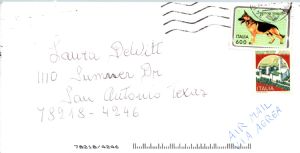 Laura DeWitt
1110 Summer Dr
San Antonio Texas
78218 - 4246
ITALIA
600
ITALIA
AIR MAIL
VIA AEREA
78218/4246